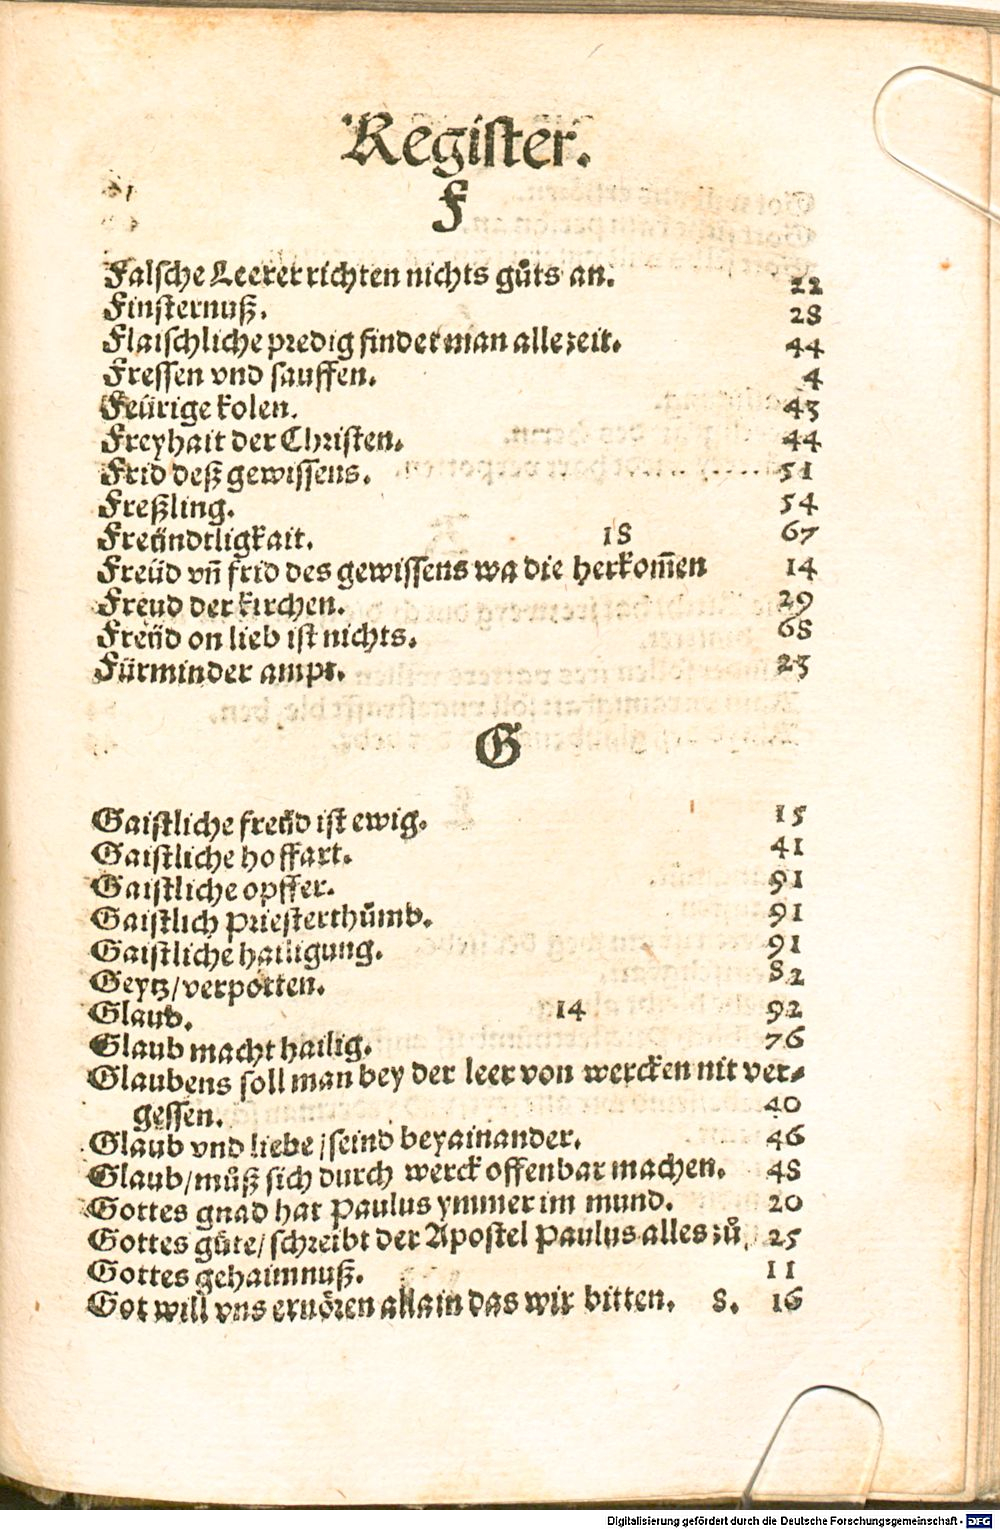 Register.
F
Falsche Leerer richten nichts gůts an. 22
Finsternuß. 28
Flaischliche predig findet man allezeit. 44
Fressen vnd sauffen. 4
Feürige kolen. 43
Freyhait der Christen. 44
Frid deß gewissens. 51
Freßling. 54
Freündtligkait. 18 67
Freüd vn̄ frid des gewissens wa die herkom̄en 14
Freud der kirchen. 29
Freüd on lieb ist nichts. 68
Fürminder ampt. 23
G
Gaistliche freüd ist ewig. 15
Gaistliche hoffart. 41
Gaistliche opffer. 91
Gaistlich priesterthůmb. 91
Gaistliche hailigung. 91
Geytz/verpotten. 82
Glaub. 14 92
Glaub macht hailig. 76
Glaubens soll man bey der leer von wercken nit ver-
gessen. 40
Glaub vnd liebe/seind beyainander. 46
Glaub/můß sich durch werck offenbar machen. 48
Gottes gnad hat Paulus ymmer im mund. 20
Gottes güte/schreibt der Apostel Paulus alles zů. 25
Gottes gehaimnuß. 11
Got will vns erhören allain das wir bitten. 8. 16
Digitalisierung gefördert durch die Deutsche Forschungsgemeinschaft - DFG